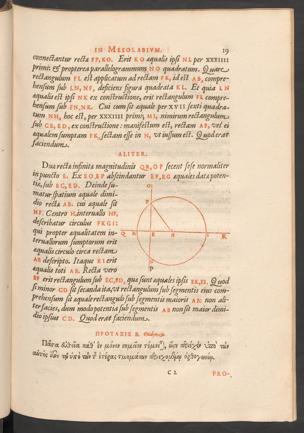 IN MESOLABIVM. 19
connectantur recta FP, KO. Erit KO aqualis ipsi NL per XXXIIII
primi: & propterea parallelogrammum NO quadratum. Quare
rectangulum FL est applicatum ad rectam FK, id est AB, compre-
hensum sub LN, NF, deficiens figura quadrata KL. Et quia LN
aqualis est ipsi NK ex constructione, erit rectangulum FL compre-
hensum sub FN, NK. Cui cum sit aquale per XVII sexti quadra-
tum NM, hoc est, per XXXIIII primi, MI, nimirum rectangulum
sub CE, ED, ex constructione: manifestum est, rectam AB, vel ei
aqualem sumptam FK, sectam esse in N, vt iussum est. Quod erat
faciendum.
ALITER.
Dua recta infinita magnitudinis QR, OP secent sese normaliter
in puncto E. Ex EO, EP abscindantur EF, EG aquales datis poten-
tia, sub EC, ED. Deinde su-
matur spatium aquale dimi-
dio recta AB. cui aquale sit
HF. Centro H, interuallo HF,
describatur circulus FKGI:
qui propter aqualitatem in-
teruallorum sumptorum erit
aqualis circulo circa rectam
AB descripto. Itaque KI erit
aqualis toti AB. Recta vero
EF erit rectangulum sub EC, ED, qua sunt aquales ipsis EK, EI. Quod
si minor CD sit secanda ita, vt rectangulum sub segmentis eius com-
prehensum sit aquale rectangulo sub segmentis maioris AB: non ali-
ter facies, dum modo potentia sub segmentis AB non sit maior dimi-
dio ipsius CD. Quod erat faciendum.
O
F
Q K E H I R
G
P
ΠΡΟΤΑΣΙΣ Β.
C 2 PRO-